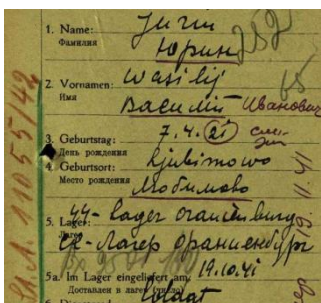 1. Name: Jurin
Фамилия Юрин 252
2. Vornamen: Wasilij 65
Имя Василий Иванович
3. Geburtstag: 7.4.21
День рождения
4. Geburtsort: Ljubimowo
Место рождения Любимово
5. Lager: SS-Lager Oranienburg
Лагерь СС-Лагерь Ораниенбург
5a. Im Lager eingeliefert am: 19.10.41
Доставлен в лагерь (число)
Soldat